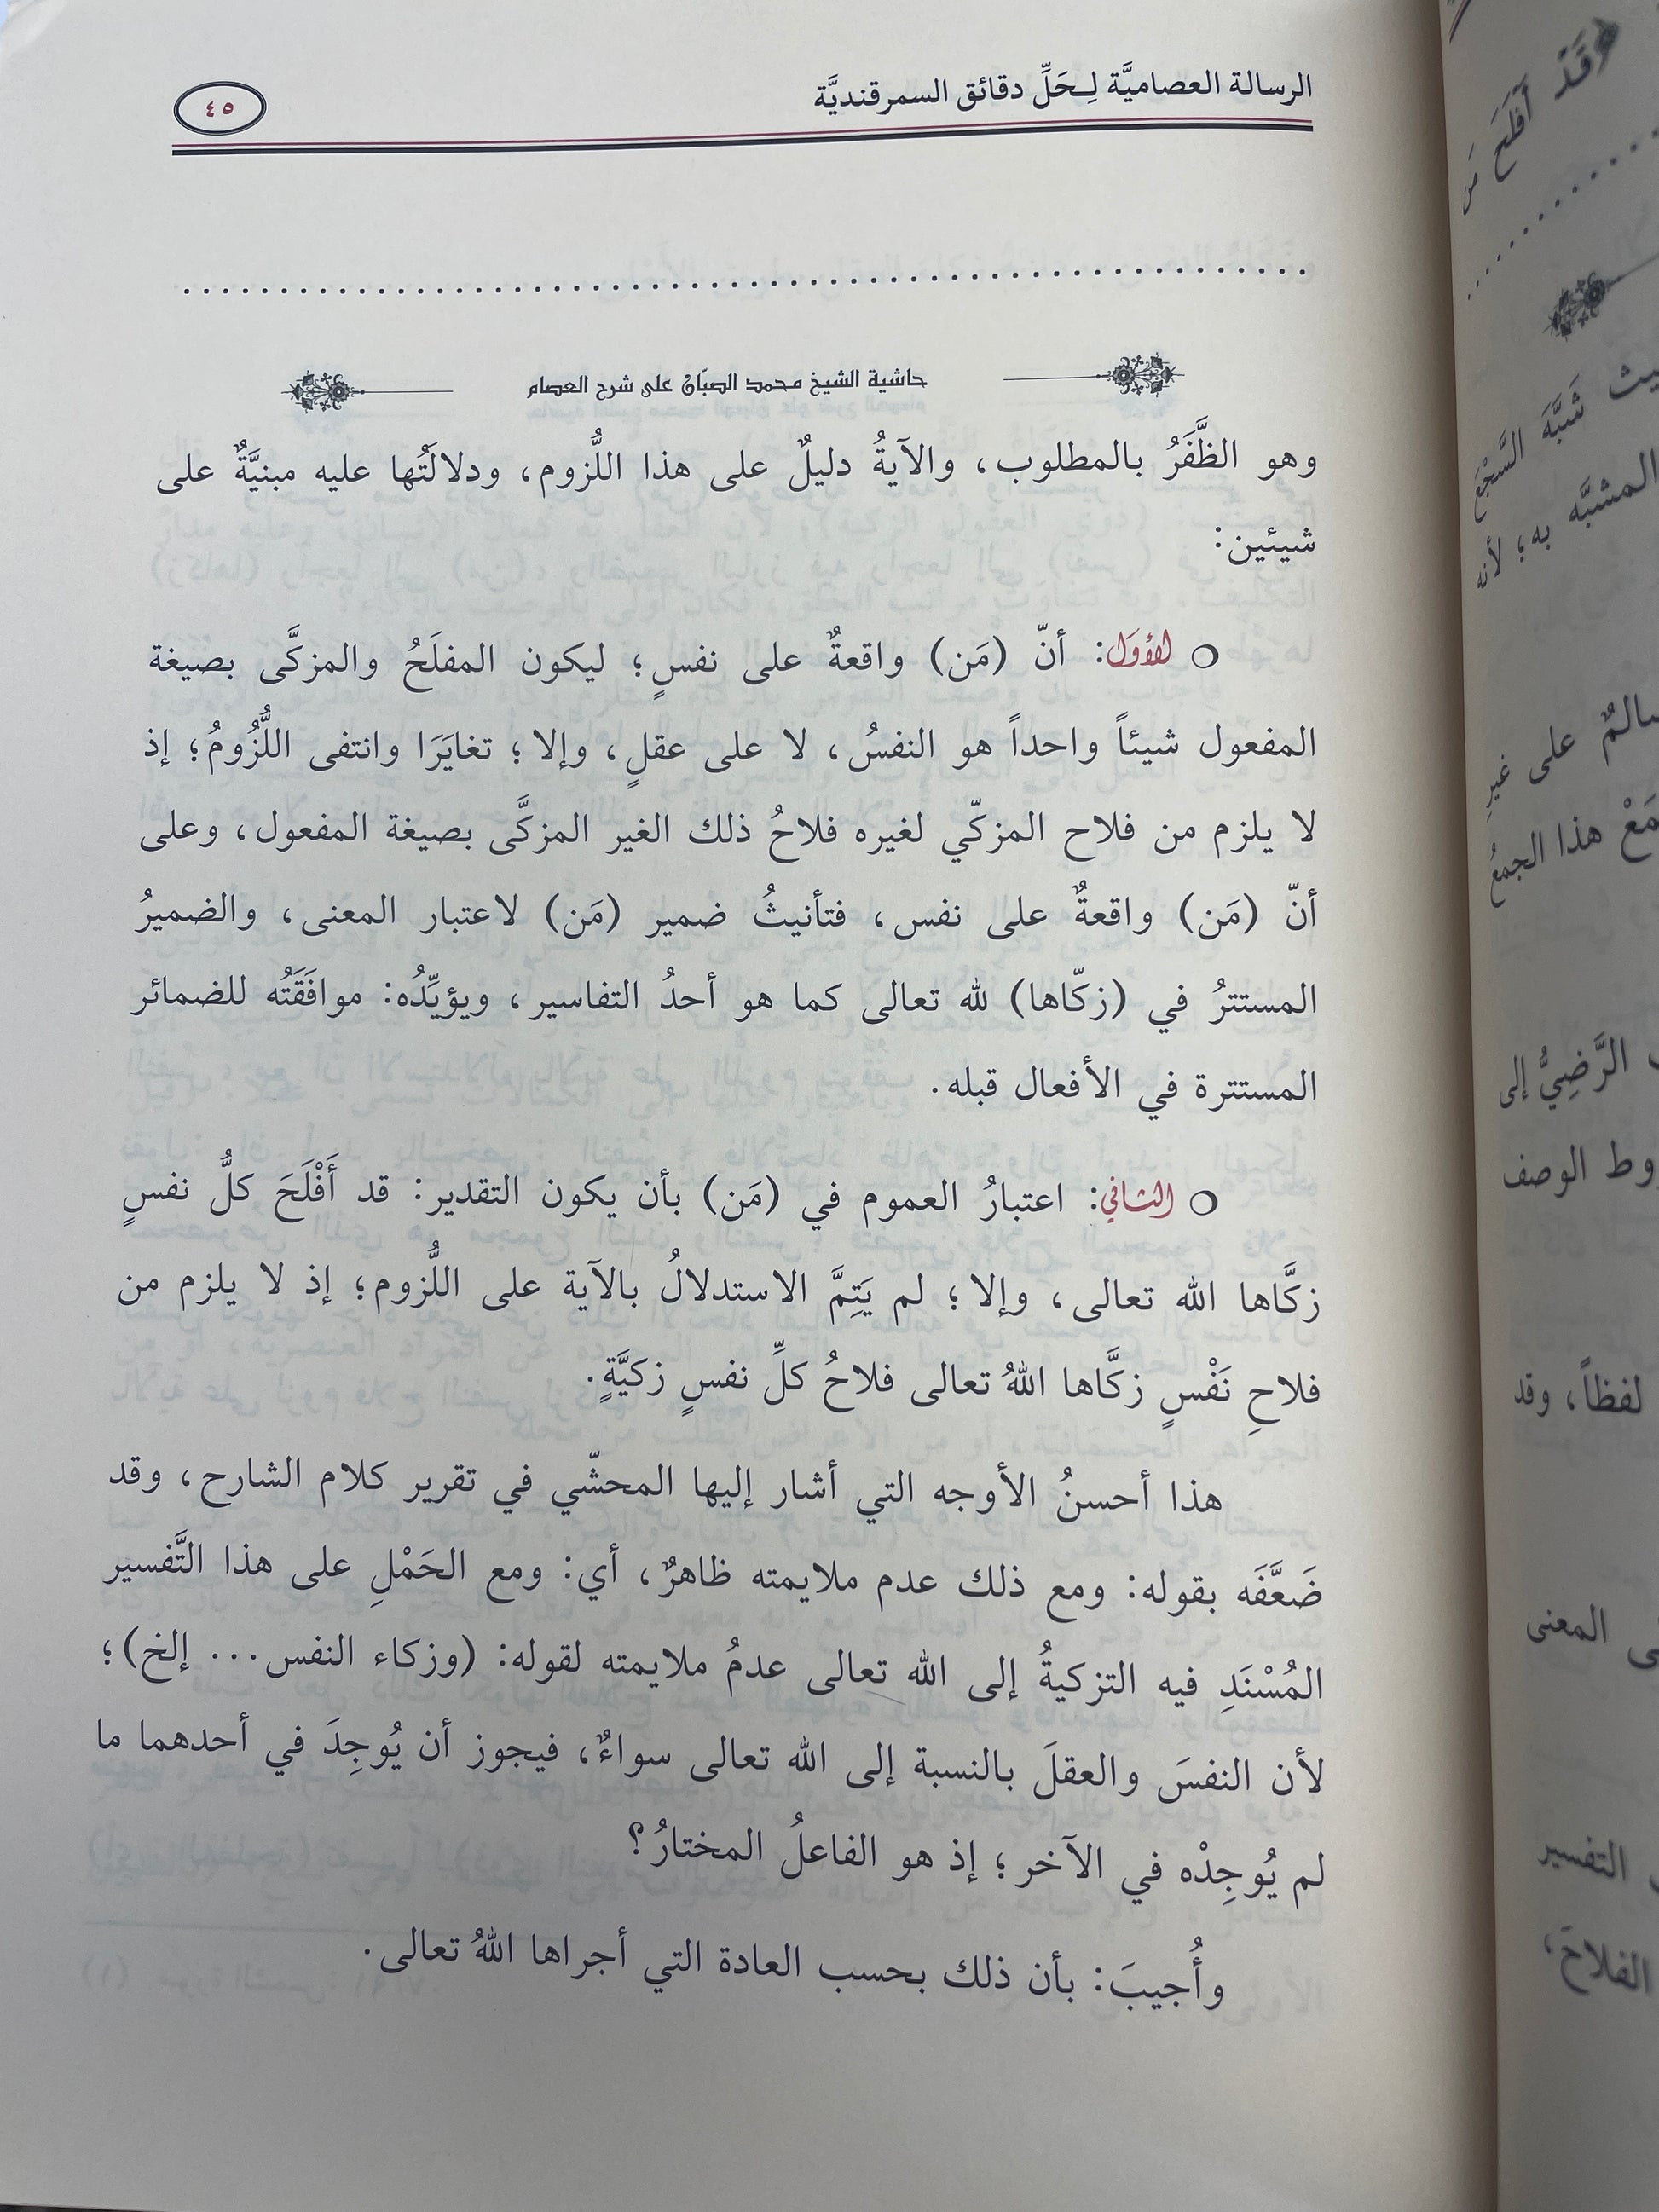 الرسالة العصاميَّة لِـحَلِّ دقائق السمرقنديَّة
٤٥
حاشية الشيخ محمد الصبّان على شرح العصام
وهو الظَّفَرُ بالمطلوب، والآيةُ دليلٌ على هذا اللُّزوم، ودلالَتُها عليه مبنيَّةٌ على
شيئين:
○ الأوّل: أنّ (مَن) واقعةٌ على نفسٍ؛ ليكون المفلَحُ والمزكَّى بصيغة
المفعول شيئاً واحداً هو النفسُ، لا على عقلٍ، وإلا؛ تغايَرَا وانتفى اللُّزُومُ؛ إذ
لا يلزم من فلاح المزكّي لغيره فلاحُ ذلك الغير المزكَّى بصيغة المفعول، وعلى
أنّ (مَن) واقعةٌ على نفس، فتأنيثُ ضمير (مَن) لاعتبار المعنى، والضميرُ
المستترُ في (زكّاها) لله تعالى كما هو أحدُ التفاسير، ويؤيِّدُه: موافَقَتُه للضمائر
المستترة في الأفعال قبله.
○ الثاني: اعتبارُ العموم في (مَن) بأن يكون التقدير: قد أَفْلَحَ كلُّ نفسٍ
زكَّاها الله تعالى، وإلا؛ لم يَتِمَّ الاستدلالُ بالآية على اللُّزوم؛ إذ لا يلزم من
فلاحِ نَفْسٍ زكَّاها اللهُ تعالى فلاحُ كلِّ نفسٍ زكيَّةٍ.
هذا أحسنُ الأوجه التي أشار إليها المحشّي في تقرير كلام الشارح، وقد
ضَعَّفَه بقوله: ومع ذلك عدم ملايمته ظاهرٌ، أي: ومع الحَمْلِ على هذا التَّفسير
المُسْنَدِ فيه التزكيةُ إلى الله تعالى عدمُ ملايمته لقوله: (وزكاء النفس... إلخ)؛
لأن النفسَ والعقلَ بالنسبة إلى الله تعالى سواءٌ، فيجوز أن يُوجِدَ في أحدهما ما
لم يُوجِدْه في الآخر؛ إذ هو الفاعلُ المختارُ؟
وأُجيبَ: بأن ذلك بحسب العادة التي أجراها اللهُ تعالى.
﴿قَدْ أَفْلَحَ مَن
شَبَّهَ السَّجْعَ
المشبَّه به؛ لأنه
على غيرِ
هذا الجمعُ
الرَّضِيُّ إلى
الوصف
لفظاً، وقد
المعنى
التفسير
الفلاحَ،